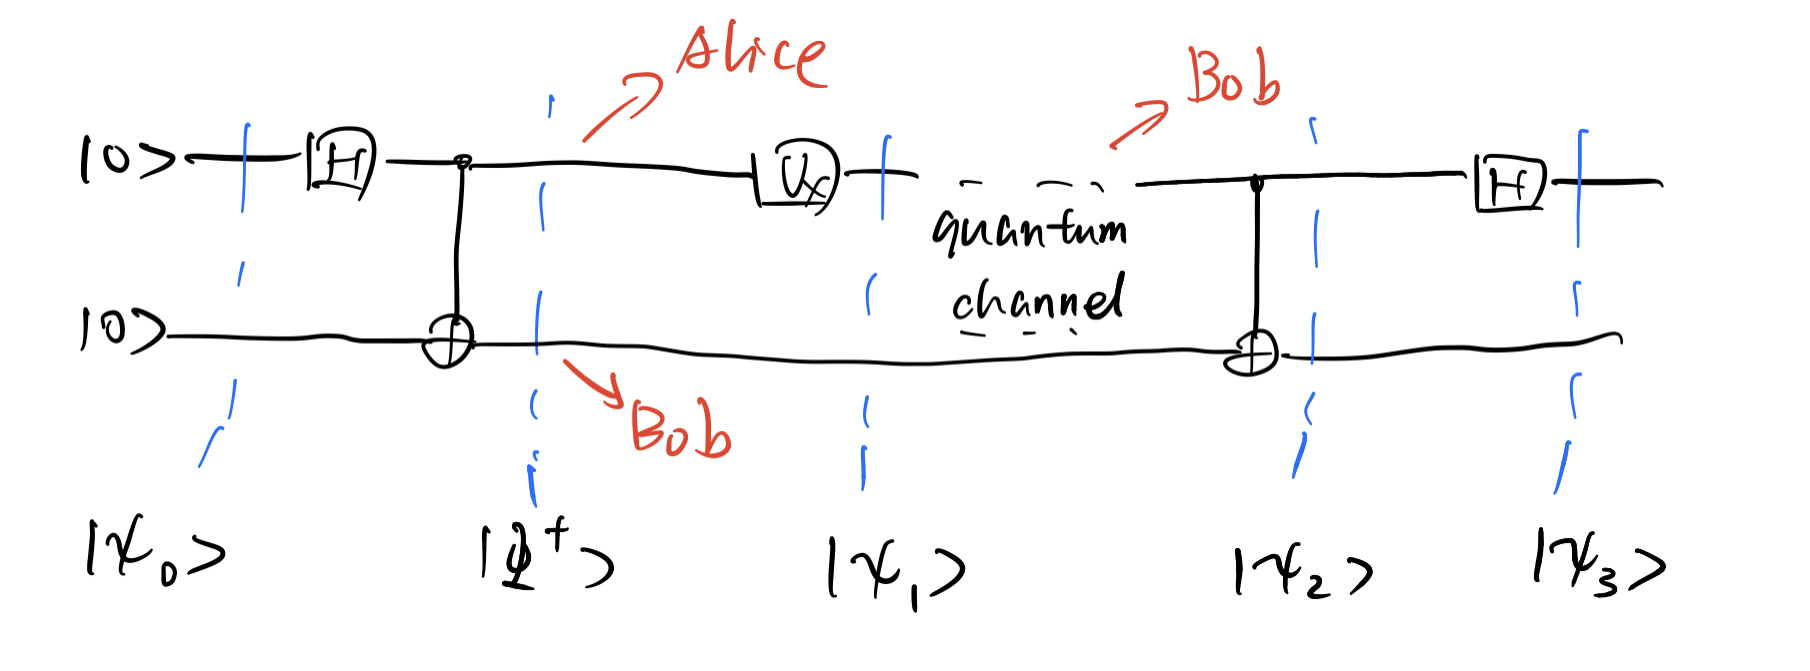 Alice
Bob
|0>
H
Uₓ
H
quantum
channel
|0>
Bob
|ψ₀>
|Φ⁺>
|ψ₁>
|ψ₂>
|ψ₃>